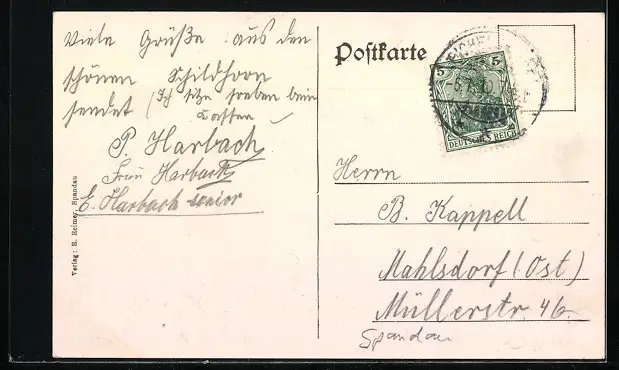 Viele Grüße aus dem
schönen Schildhorn
sendet (Ich sitze soeben beim
Kaffee)
P. Harbach
Frau Harbach
E. Harbach senior
Verlag: R. Reimer, Spandau
Postkarte
5 5
DEUTSCHES REICH
Herrn
B. Kappell
Mahlsdorf (Ost)
Müllerstr. 46.
Spandau